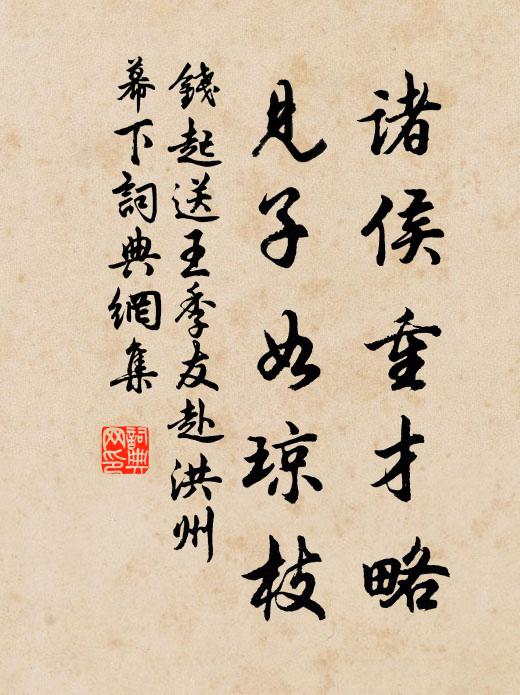 諸侯重才略
見子如琼枝
錢起送王季友赴洪州
幕下詞典網集
詞典网印